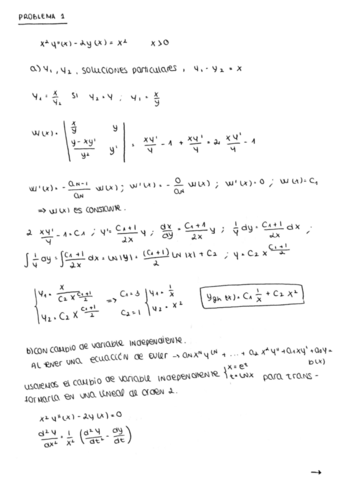 PROBLEMA 1
x² y''(x) - 2y(x) = x²   x>0
a) y₁, y₂, soluciones particulares, y₁ · y₂ = x
y₁ = x/y₂ si y₂ = y ; y₁ = x/y
W(x) = | x/y   y ; (y - xy')/y²   y' | = xy'/y - 1 + xy'/y = 2 xy'/y - 1
W'(x) = - aₙ₋₁/aₙ W(x) ; W'(x) = - 0/aₙ W(x) ; W'(x) = 0 ; W(x) = C₁
⇒ W(x) es constante.
2 xy'/y - 1 = C₁ ; y' = (C₁+1)/2x y ; dx/dy = (C₁+1)/2x y ; 1/y dy = (C₁+1)/2x dx ;
∫ 1/y dy = ∫ (C₁+1)/2x dx = ln|y| = (C₁+1)/2 ln|x| + C₂ ; y = C₂ x^((C₁+1)/2)
{ y₁ = x/(C₂ x^((C₁+1)/2)) ⇒ C₁ = 3 { y₁ = 1/x   y_gh(x) = C₁ 1/x + C₂ x²
y₂ = C₂ x^((C₁+1)/2)   C₂ = 1   y₂ = x²
b) Con cambio de variable independiente.
Al tener una ecuación de Euler → aₙxⁿyⁿ + ... + a₂x²y'' + a₁xy' + a₀y = b(x)
usaremos el cambio de variable independiente { x = eᵗ t = ln x para trans-
formarla en una lineal de orden 2.
x² y''(x) - 2y(x) = 0
d²y/dx² = 1/x² (d²y/dt² - dy/dt)
→